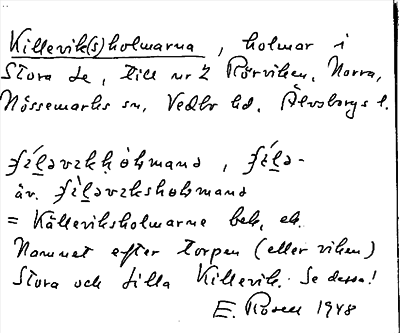 Killevik(s)holmarna, holmar i
Stora Le, till nr 2 Rörviken, Norra,
Nössemarks sn, Vedbo hd, Älvsborgs l.
äv.
= Källeviksholmarne bek, ek.
Namnet efter torpen (eller viken)
Stora och Lilla Killevik. Se dessa!
E. Rosell 1948